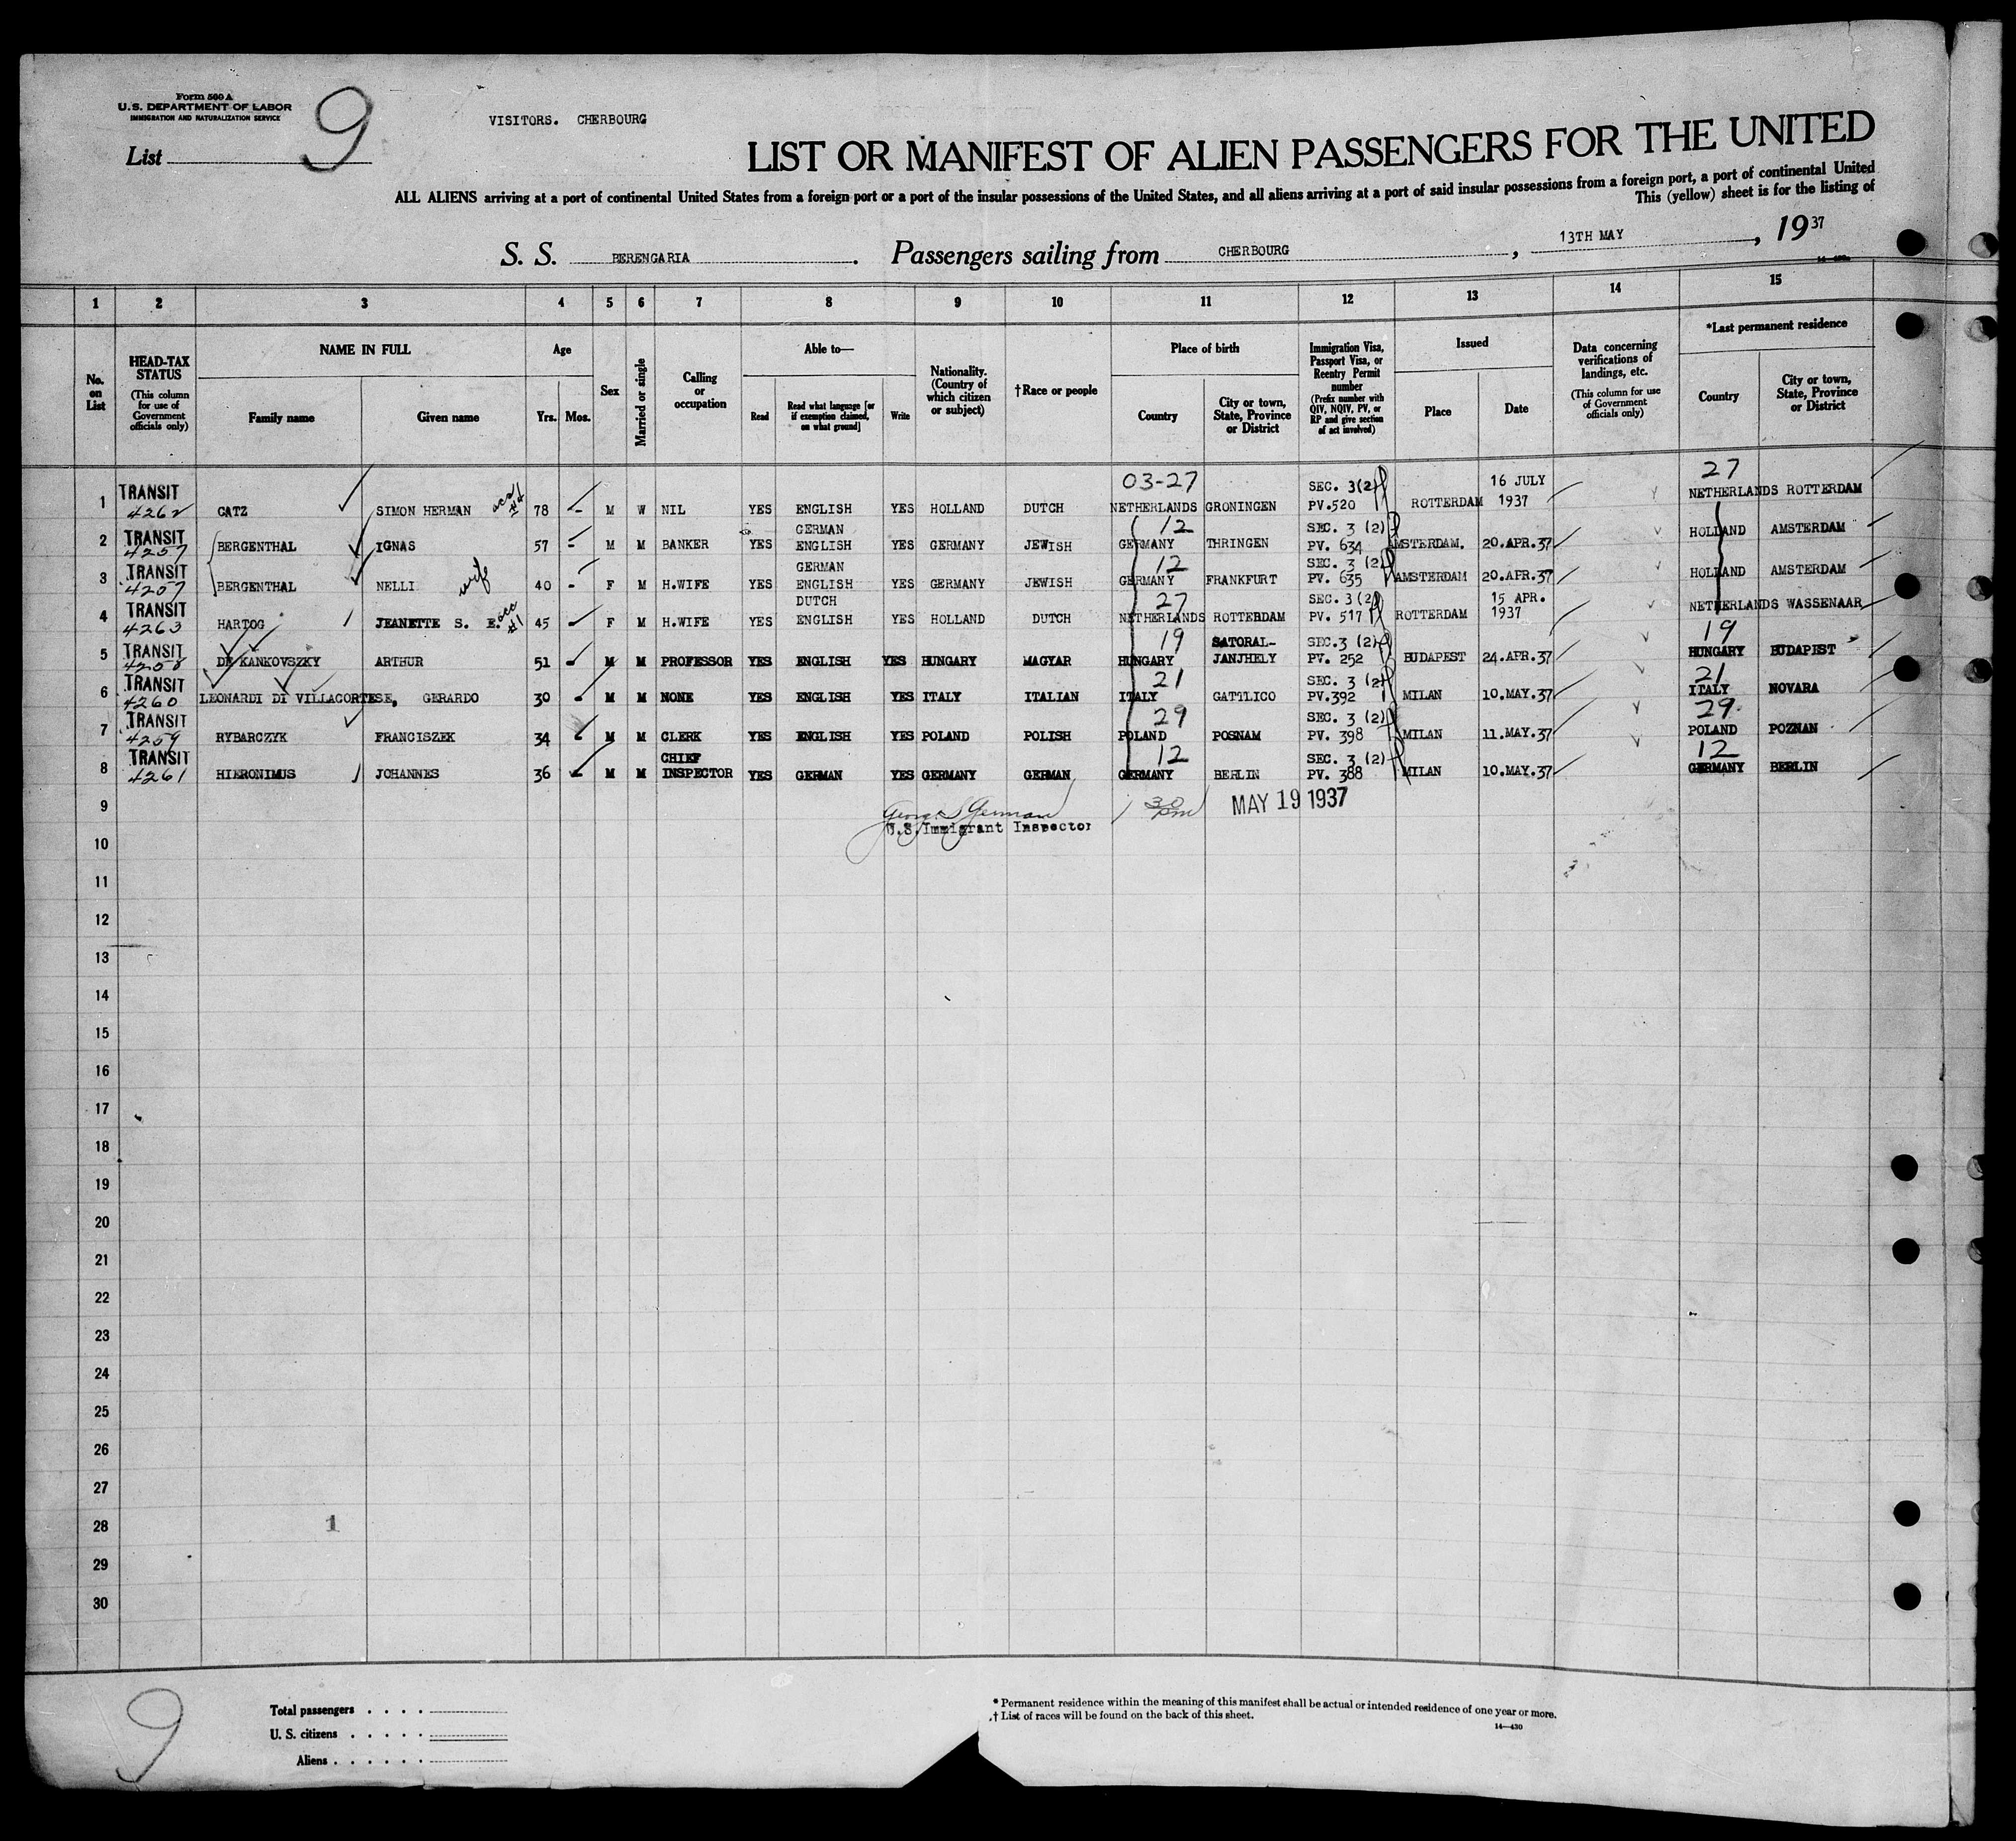 Form 500 A
U.S. DEPARTMENT OF LABOR
IMMIGRATION AND NATURALIZATION SERVICE
List 9
VISITORS. CHERBOURG
LIST OR MANIFEST OF ALIEN PASSENGERS FOR THE UNITED
ALL ALIENS arriving at a port of continental United States from a foreign port or a port of the insular possessions of the United States, and all aliens arriving at a port of said insular possessions from a foreign port, a port of continental United
This (yellow) sheet is for the listing of
S. S. BERENGARIA. Passengers sailing from CHERBOURG, 13TH MAY, 1937
1 2 3 4 5 6 7 8 9 10 11 12 13 14 15
No. on List
HEAD-TAX STATUS (This column for use of Government officials only)
NAME IN FULL Family name Given name
Age Yrs. Mos.
Sex
Married or single
Calling or occupation
Able to— Read Read what language [or if exemption claimed, on what ground] Write
Nationality. (Country of which citizen or subject)
†Race or people
Place of birth Country City or town, State, Province or District
Immigration Visa, Passport Visa, or Reentry Permit number (Prefix number with QIV, NQIV, PV, or RP and give section of act involved)
Issued Place Date
Data concerning verifications of landings, etc. (This column for use of Government officials only)
*Last permanent residence Country City or town, State, Province or District
1 TRANSIT 4262 CATZ SIMON HERMAN 78 M W NIL YES ENGLISH YES HOLLAND DUTCH 03-27 NETHERLANDS GRONINGEN SEC. 3(2) PV.520 ROTTERDAM 16 JULY 1937 27 NETHERLANDS ROTTERDAM
2 TRANSIT 4257 BERGENTHAL IGNAS 57 M M BANKER YES GERMAN ENGLISH YES GERMANY JEWISH 12 GERMANY THRINGEN SEC. 3 (2) PV. 634 AMSTERDAM. 20.APR.37 HOLLAND AMSTERDAM
3 TRANSIT 4257 BERGENTHAL NELLI wife 40 F M H.WIFE YES GERMAN ENGLISH YES GERMANY JEWISH 12 GERMANY FRANKFURT SEC. 3 (2) PV. 635 AMSTERDAM 20.APR.37 HOLLAND AMSTERDAM
4 TRANSIT 4263 HARTOG JEANETTE S. E. 45 F M H.WIFE YES DUTCH ENGLISH YES HOLLAND DUTCH 27 NETHERLANDS ROTTERDAM SEC. 3 (2) PV. 517 ROTTERDAM 15 APR. 1937 NETHERLANDS WASSENAAR
5 TRANSIT 4258 DE KANKOVSZKY ARTHUR 51 M M PROFESSOR YES ENGLISH YES HUNGARY MAGYAR 19 HUNGARY SATORAL-JANJHELY SEC.3 (2) PV. 252 BUDAPEST 24.APR.37 19 HUNGARY BUDAPEST
6 TRANSIT 4260 LEONARDI DI VILLACORTESE, GERARDO 30 M M NONE YES ENGLISH YES ITALY ITALIAN 21 ITALY GATTLICO SEC. 3 (2) PV.392 MILAN 10.MAY.37 21 ITALY NOVARA
7 TRANSIT 4259 RYBARCZYK FRANCISZEK 34 M M CLERK YES ENGLISH YES POLAND POLISH 29 POLAND POSNAM SEC. 3 (2) PV. 398 MILAN 11.MAY.37 29. POLAND POZNAN
8 TRANSIT 4261 HIERONIMUS JOHANNES 36 M M CHIEF INSPECTOR YES GERMAN YES GERMANY GERMAN 12 GERMANY BERLIN SEC. 3 (2) PV. 388 MILAN 10.MAY.37 12 GERMANY BERLIN
9 MAY 19 1937
U.S. Immigrant Inspector
10
11
12
13
14
15
16
17
18
19
20
21
22
23
24
25
26
27
28 1
29
30
9
Total passengers . . . .
U. S. citizens . . . . .
Aliens . . . . . .
* Permanent residence within the meaning of this manifest shall be actual or intended residence of one year or more.
† List of races will be found on the back of this sheet.
14—430